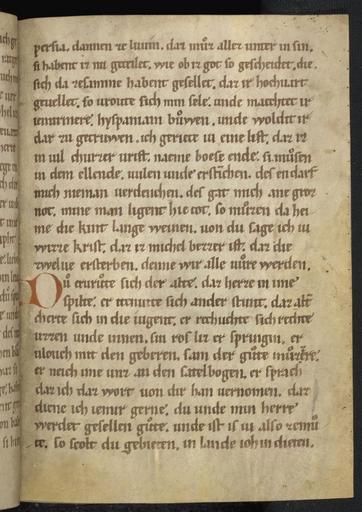 persia. dannen ze liuin. daz můz allez unter in sin.
si habent iz nu geteilet. wie ob iz got so gescheidet. die
sich da zesamne habent gesellet. daz ir hochuart
geuellet. so urout sich min sele. unde machtet ir
hyspaniam bůwen. unde woldit ir
dar zu getruwen. ich geriete iu eine list. daz iz
in uil churzer urist. naeme boese ende. si můsen
in dem ellende. uulen unde ersticken. des endarf
mich nieman uerdenchen. des gat mich ane groz
not. mine man ligent hie tot. so můzen da hei
me die kint lange weinen. uon du sage ich iu
wizze krist. daz iz michel bezzer ist. daz die
zwelue ersterben. denne wir alle uůre werden.
Dů erurůte sich der alte. daz herze in ime
spilte. er sich ander stunt. daz alt
cherte sich in die iugent. er rechuchte sich rechte
uzzen unde innen. sin ros liz er springin. er
ulouch mit den geberen. sam der gůte můzzere.
er neich ime unz an den satelbogen. er sprach
daz ich daz wort uon dir han uernomen. daz
diene ich iemir gerne. du unde min herre
werdet gesellen gůte. unde ist is iu also zemů
te. so scolt du gebieten. in lande ioh in dieten.